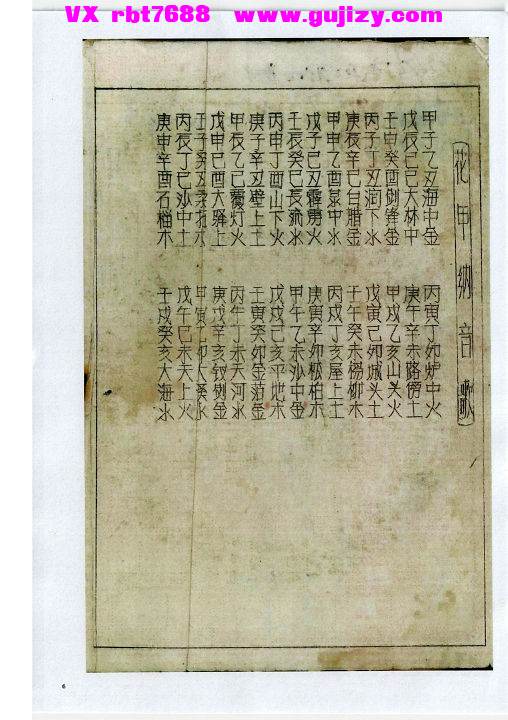 VX rbt7688 www.gujizy.com
花甲納音歌
甲子乙丑海中金 丙寅丁卯炉中火
戊辰己巳大林中 庚午辛未路傍土
壬申癸酉劍鋒金 甲戌乙亥山头火
丙子丁丑澗下水 戊寅己卯城头土
庚辰辛巳白腊金 壬午癸未楊柳木
甲申乙酉泉中水 丙戌丁亥屋上土
戊子己丑霹靂火 庚寅辛卯松柏木
壬辰癸巳長流水 甲午乙未沙中金
丙申丁酉山下火 戊戌己亥平地木
庚子辛丑壁上土 壬寅癸卯金箔金
甲辰乙巳覆灯火 丙午丁未天河水
戊申己酉大驛土 庚戌辛亥釵釧金
壬子癸丑桑柘木 甲寅乙卯大溪水
丙辰丁巳沙中土 戊午己未天上火
庚申辛酉石榴木 壬戌癸亥大海水
6